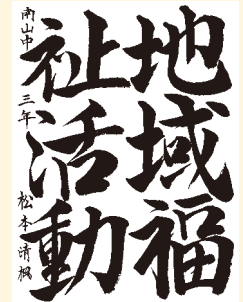 地域福
祉活動
南山中 三年 松本清楓